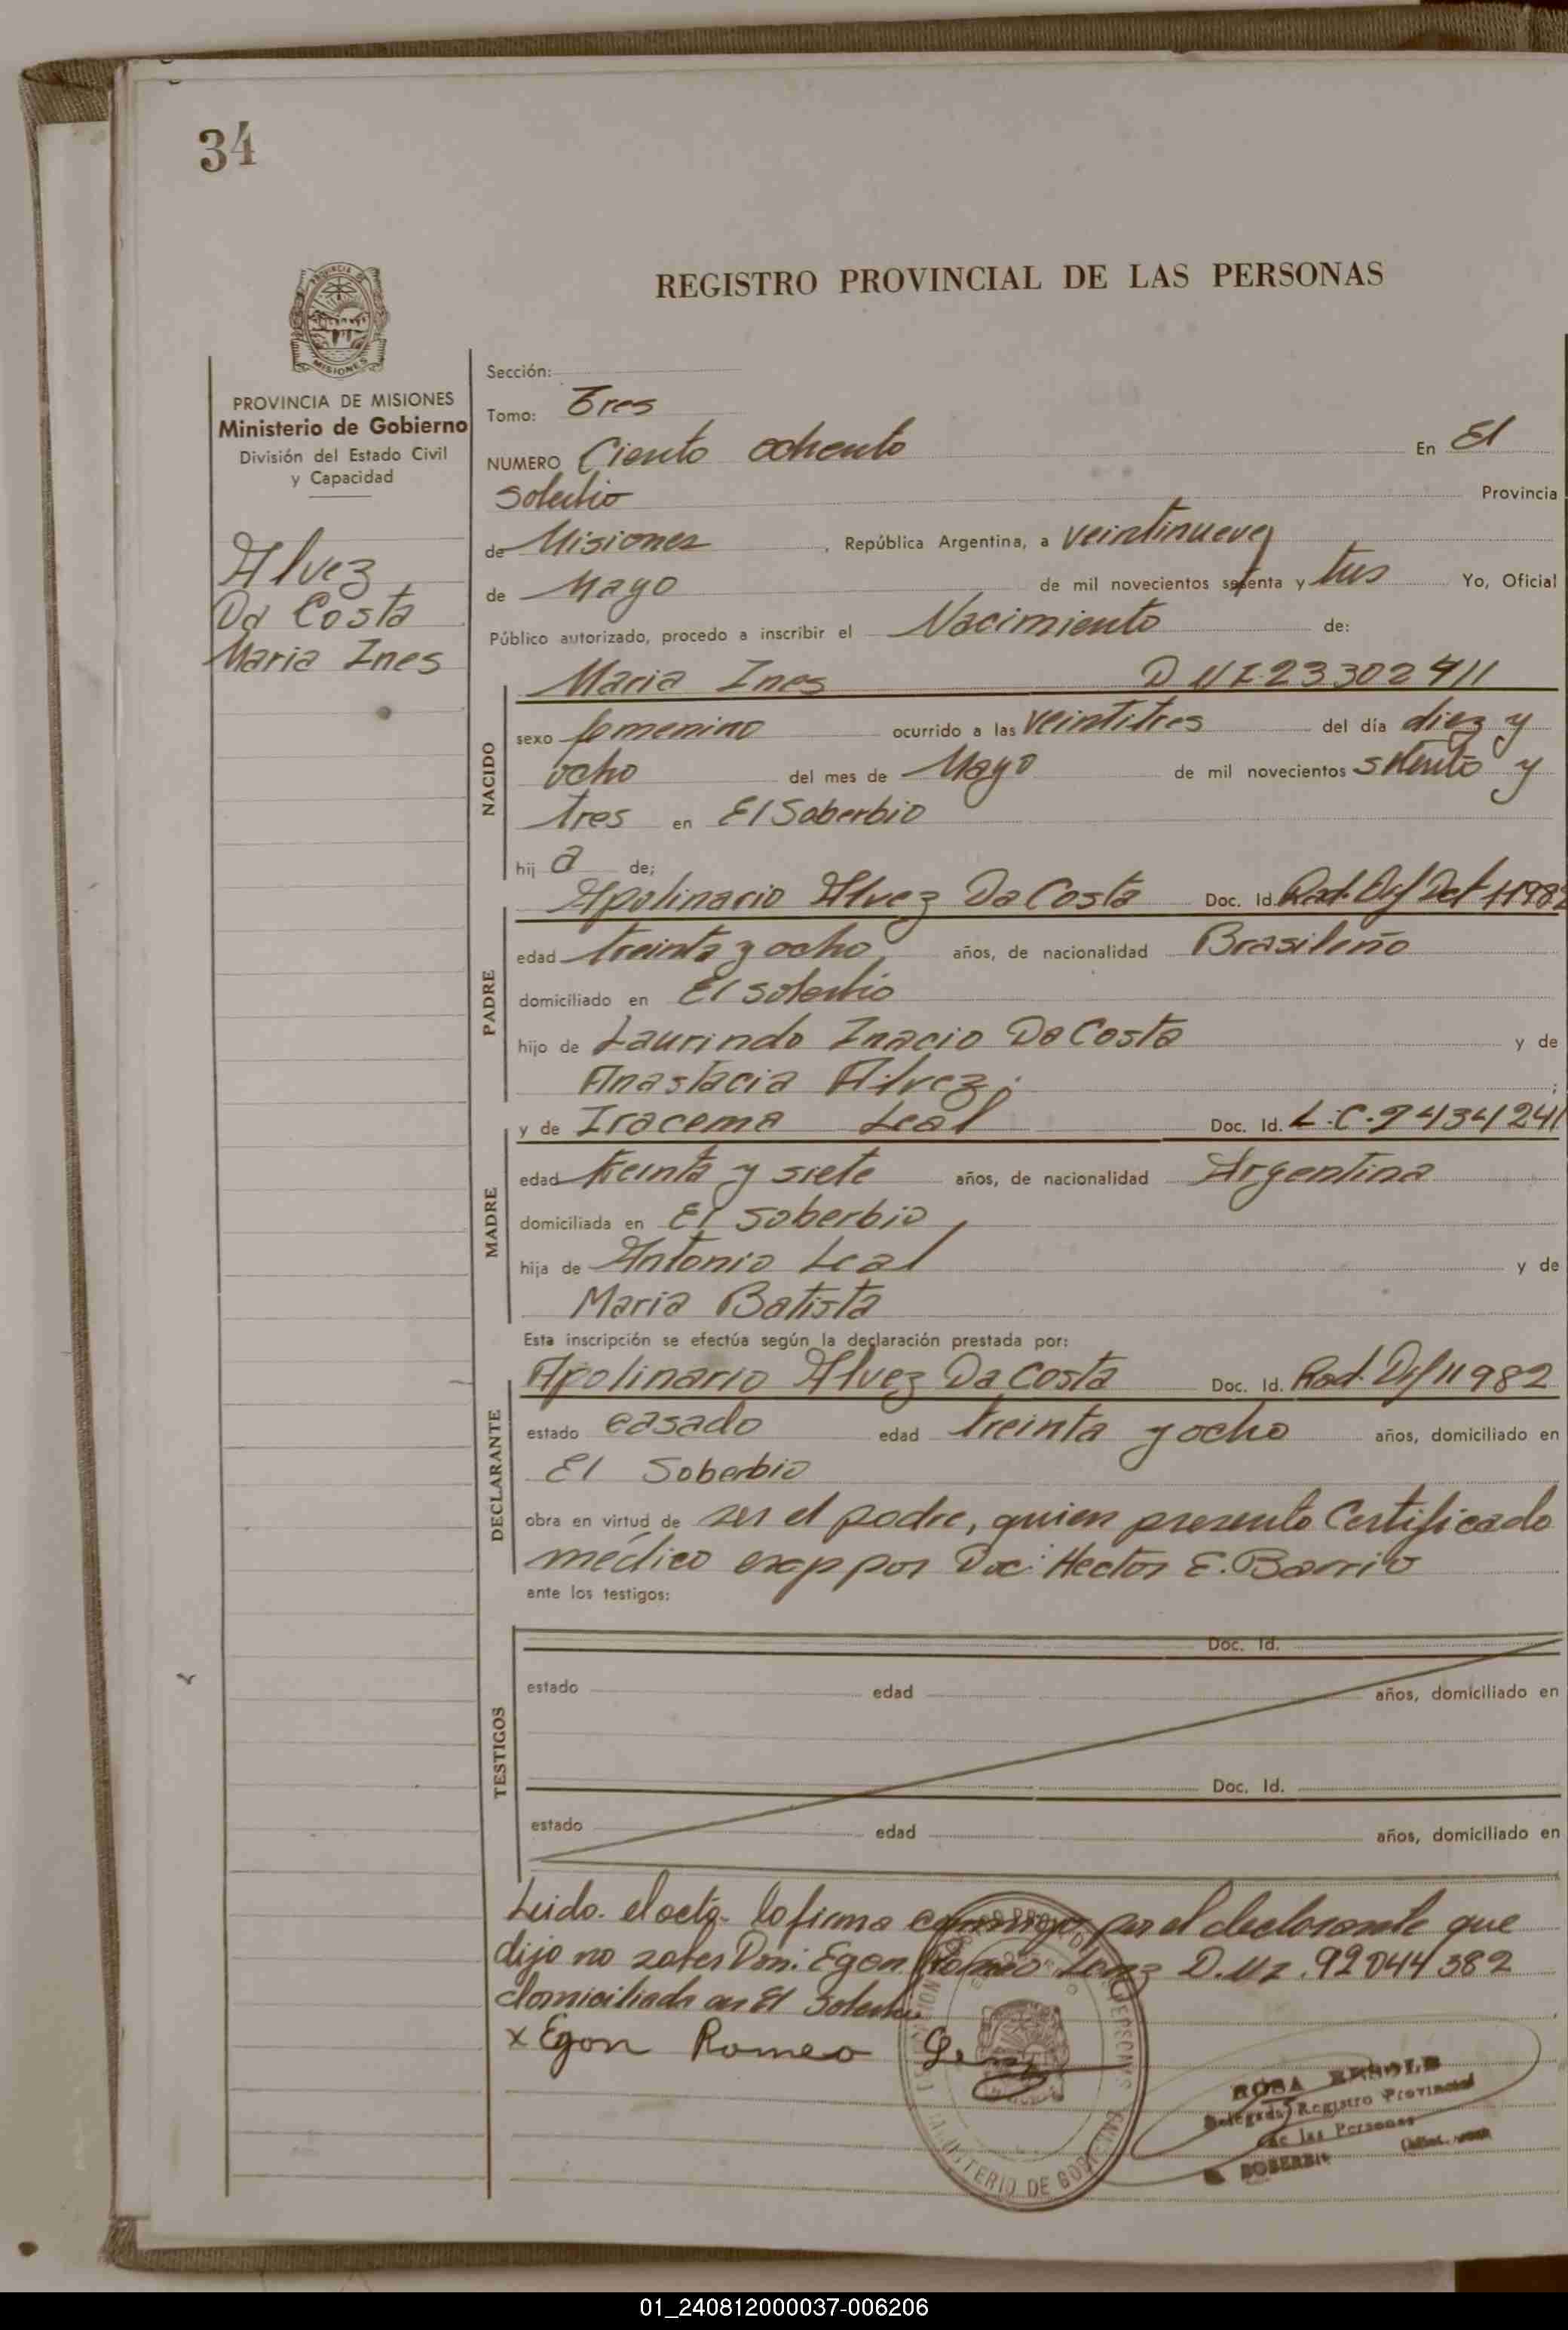 34
REGISTRO PROVINCIAL DE LAS PERSONAS
PROVINCIA DE
MISIONES
PROVINCIA DE MISIONES
Ministerio de Gobierno
División del Estado Civil
y Capacidad
Alvez
Da Costa
Maria Ines
Sección:
Tomo: Tres
NUMERO Ciento ochenta En El
Soberbio Provincia
de Misiones, República Argentina, a veintinueve
de Mayo de mil novecientos setenta y tres Yo, Oficial
Público autorizado, procedo a inscribir el Nacimiento de:
Maria Ines D NI 23302411
NACIDO
sexo femenino ocurrido a las veintitres del día diez y
ocho del mes de Mayo de mil novecientos setenta y
tres en El Soberbio
hij a de;
Apolinario Alvez Da Costa Doc. Id. Rad. Def
PADRE
edad treinta y ocho años, de nacionalidad Brasileño
domiciliado en El Soberbio
hijo de Laurindo Inacio Da Costa y de
Anastacia Alvez. ;
y de Iracema Leal Doc. Id. L.C.
MADRE
edad treinta y siete años, de nacionalidad Argentina
domiciliada en El Soberbio,
hija de Antonio Leal y de
Maria Batista
Esta inscripción se efectúa según la declaración prestada por:
Apolinario Alvez Da Costa Doc. Id. Rad. Def 11982
DECLARANTE
estado casado edad treinta y ocho años, domiciliado en
El Soberbio
obra en virtud de ser el padre, quien presento Certificado
médico exp por Doc: Hector E. Barrio
ante los testigos:
TESTIGOS
Doc. Id.
estado edad años, domiciliado en
Doc. Id.
estado edad años, domiciliado en
Leido el acta lo firma conmigo por el declarante que
dijo no saber Don: Egon Romeo Lenz D.NI.92044382
domiciliado en El Soberbio
x Egon Romeo Lenz
MINISTERIO DE GOBIERNO
ROSA
Delegada Registro Provincial
de las Personas
EL SOBERBIO
01_240812000037-006206